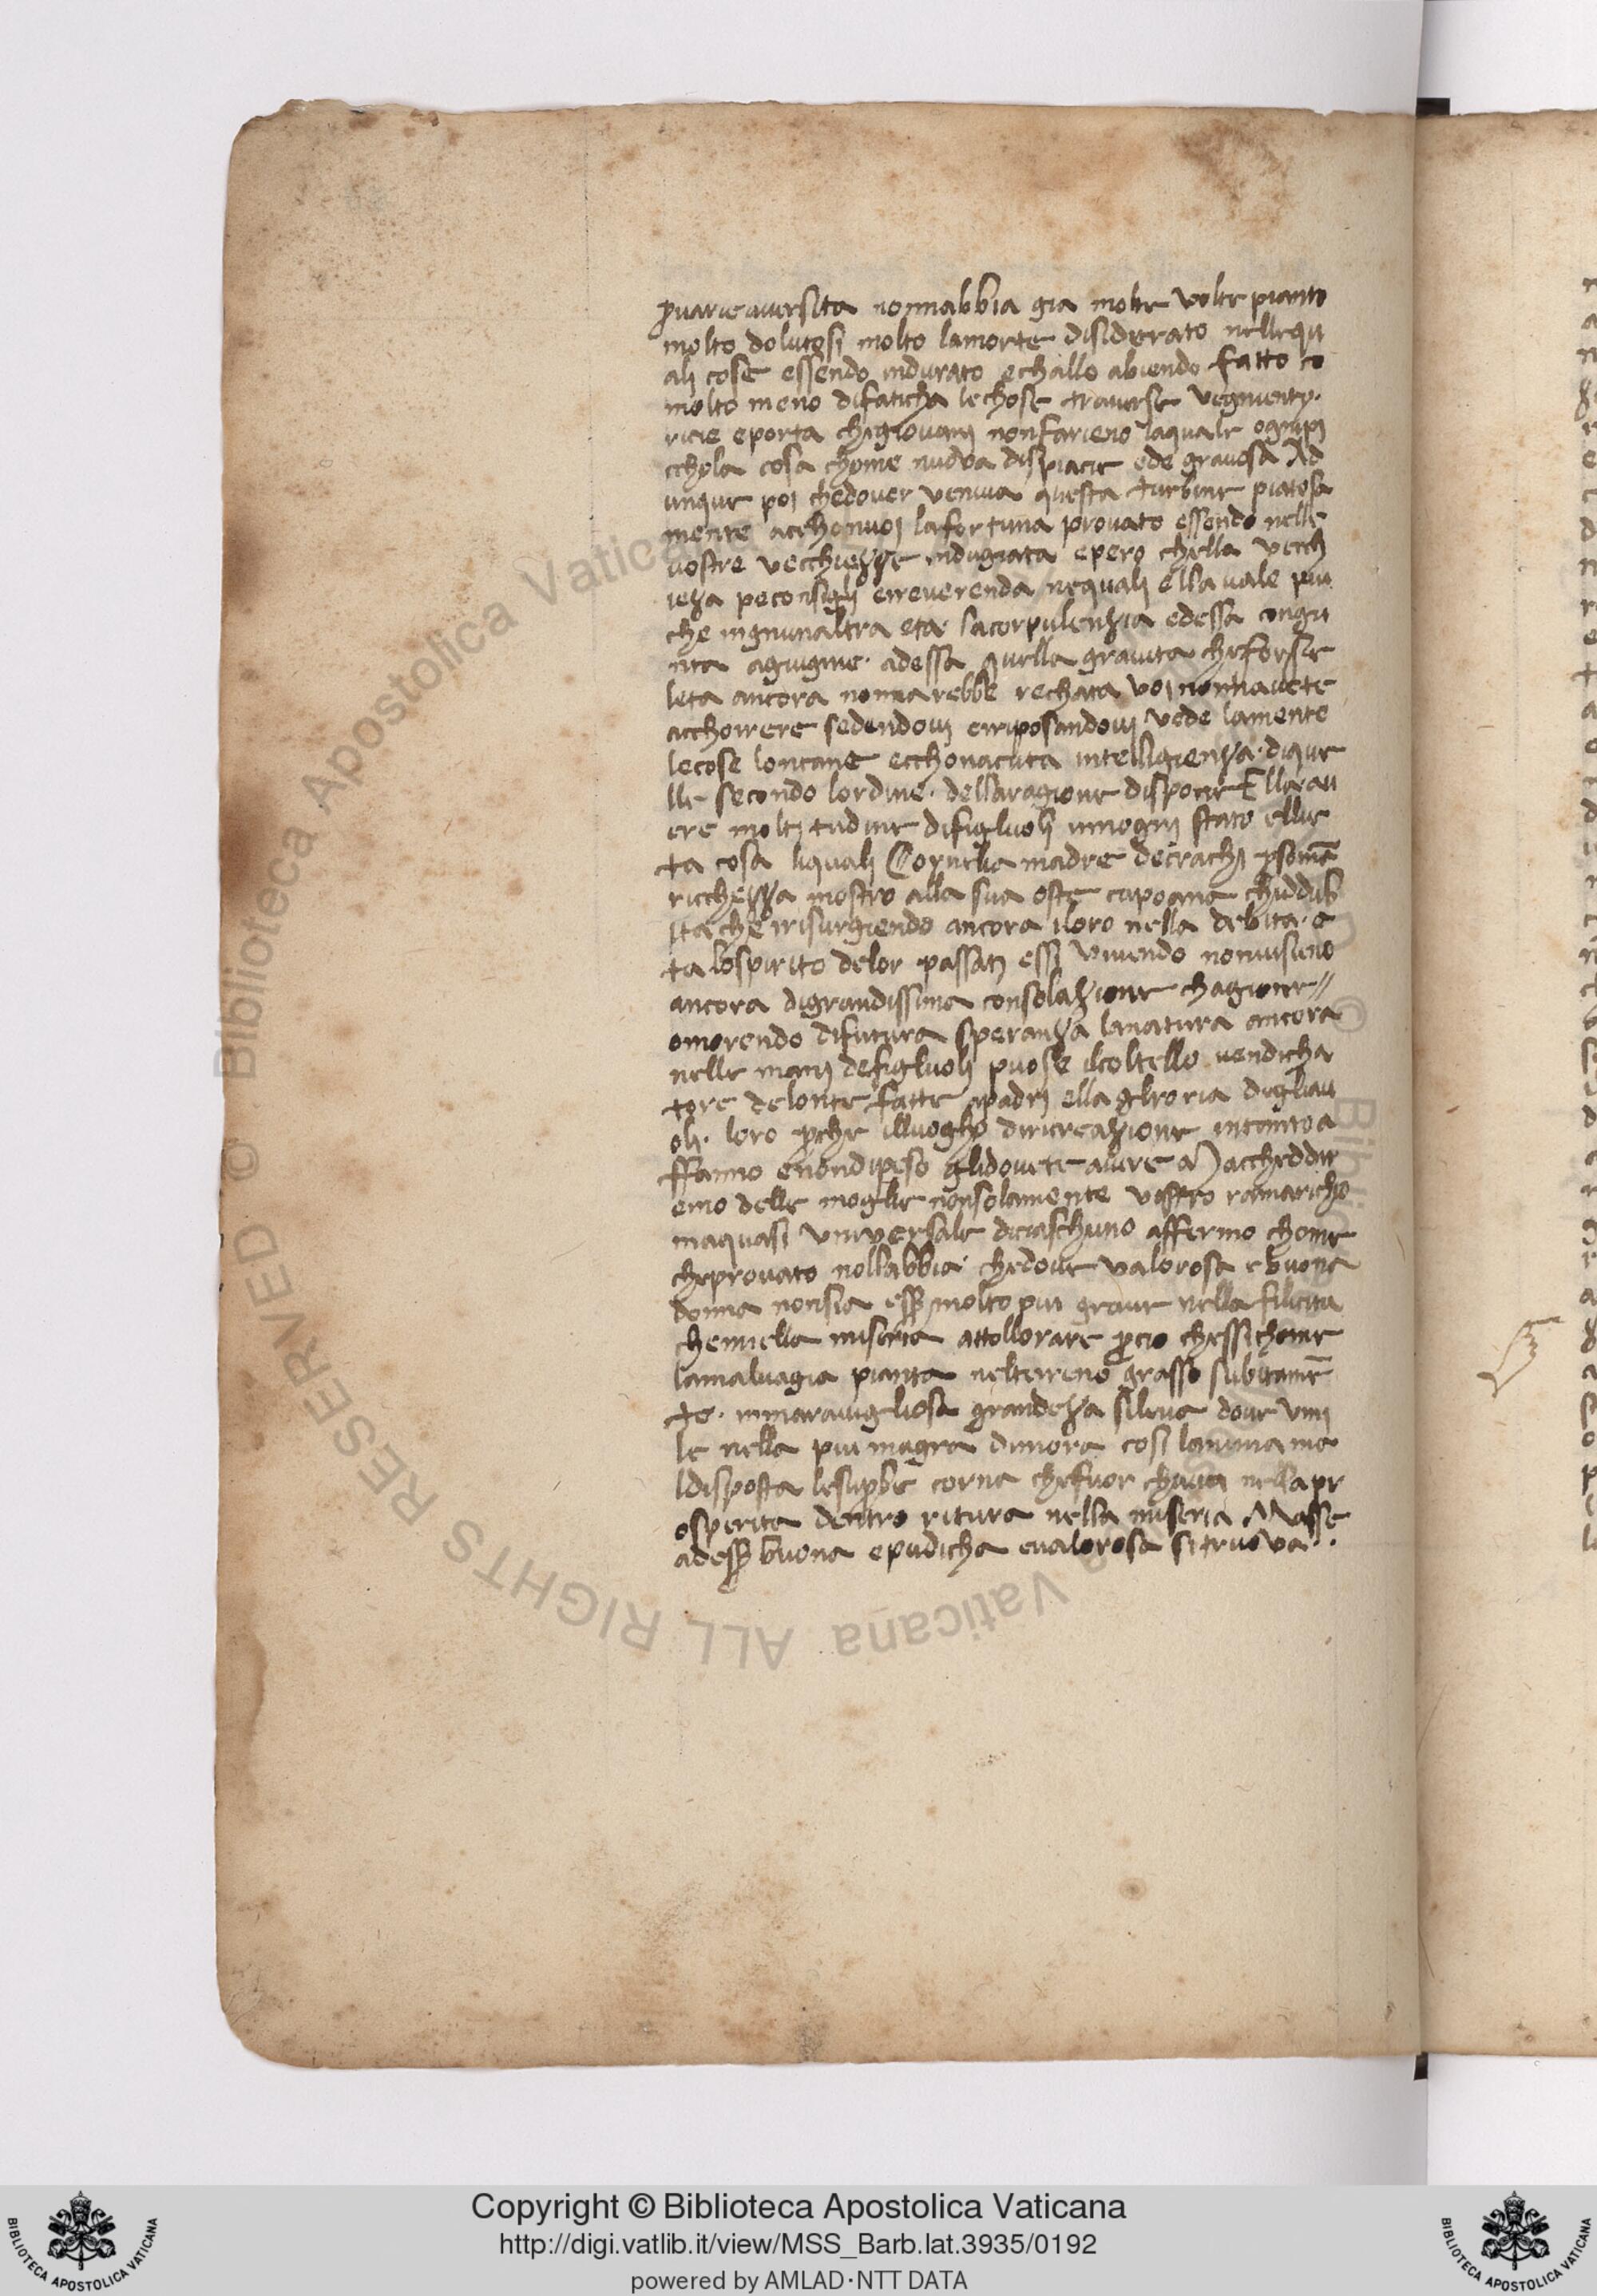 ꝑuarie auersita nonnabbia gia molte volte pianto
molto dolutosi molto lamorte disiderato nellequ
ali cose essendo indurato echallo abiendo fatto co
molto meno difaticha lechose trauerse vegniente
riceie eporta chigiovani nonfarieno laquale ognipi
cchola cosa chome nuova dispiacie ede gravosa Ad
unque poi chedover veniua questa turbine piatosa
mente acchonvoi lafortuna provato essendo nelle
vostre vecchiezze indugiata epero chella vecch
ieza peconsigli erreverenda nequali ella vale piu
che ingnunaltra eta lacorpulenzia edessa congu
nta agiugnie adessa quella gravita cheforsie
leta ancora nonnarebbe rechata voi nonnavete
acchorrere sedendovi erriposandovi vede lamente
lecose lontane ecchonacuta intelligienza dique
lle secondo lordine dellaragione disponie Ellaau
ere moltitudine difigluoli innogni stato ellie
ta cosa liquali Cornelia madre degrachi ꝑsom̄a
ricchezza mostro alla sua oste capoana chiddub
ita che risurgiendo ancora iloro nella debita e
ta lospirito delor passati essi vivendo nonvisieno
ancora digrandissima consolazione chagione//
omorendo difutura speranza lanatura ancora
nelle mani defigluoli puose ilcoltello vendicha
tore delonte fatte apadri ella ghroria degliau
oli loro ꝑche illuogho diricreazione intanto a
ffanno enondipeso glidovete avere Maccheddir
emo delle moglie nonsolamente vostro ramaricho
maquasi vniversale diciaschuno affermo chome
cheprovato nollabbia chedove valorosa e buona
donna nonsia esse molto piu grave nella filicita
chennella miseria attollorare ꝑcio chessichome
lamalvagia pianta nelterreno grasso subitamē
te inmaravigliosa grandeza silieva dove vmi
le nella piu magra dimora cosi lanima ma
ldisposta lesuꝑbe corna chefuor chacci nella pr
osperita dentro ritira nella miseria Masse
adesse buona epudicha evalorosa sitruova
Copyright © Biblioteca Apostolica Vaticana
http://digi.vatlib.it/view/MSS_Barb.lat.3935/0192
powered by AMLAD·NTT DATA
BIBLIOTECA APOSTOLICA VATICANA
BIBLIOTECA APOSTOLICA VATICANA
© Biblioteca Apostolica Vaticana ALL RIGHTS RESERVED